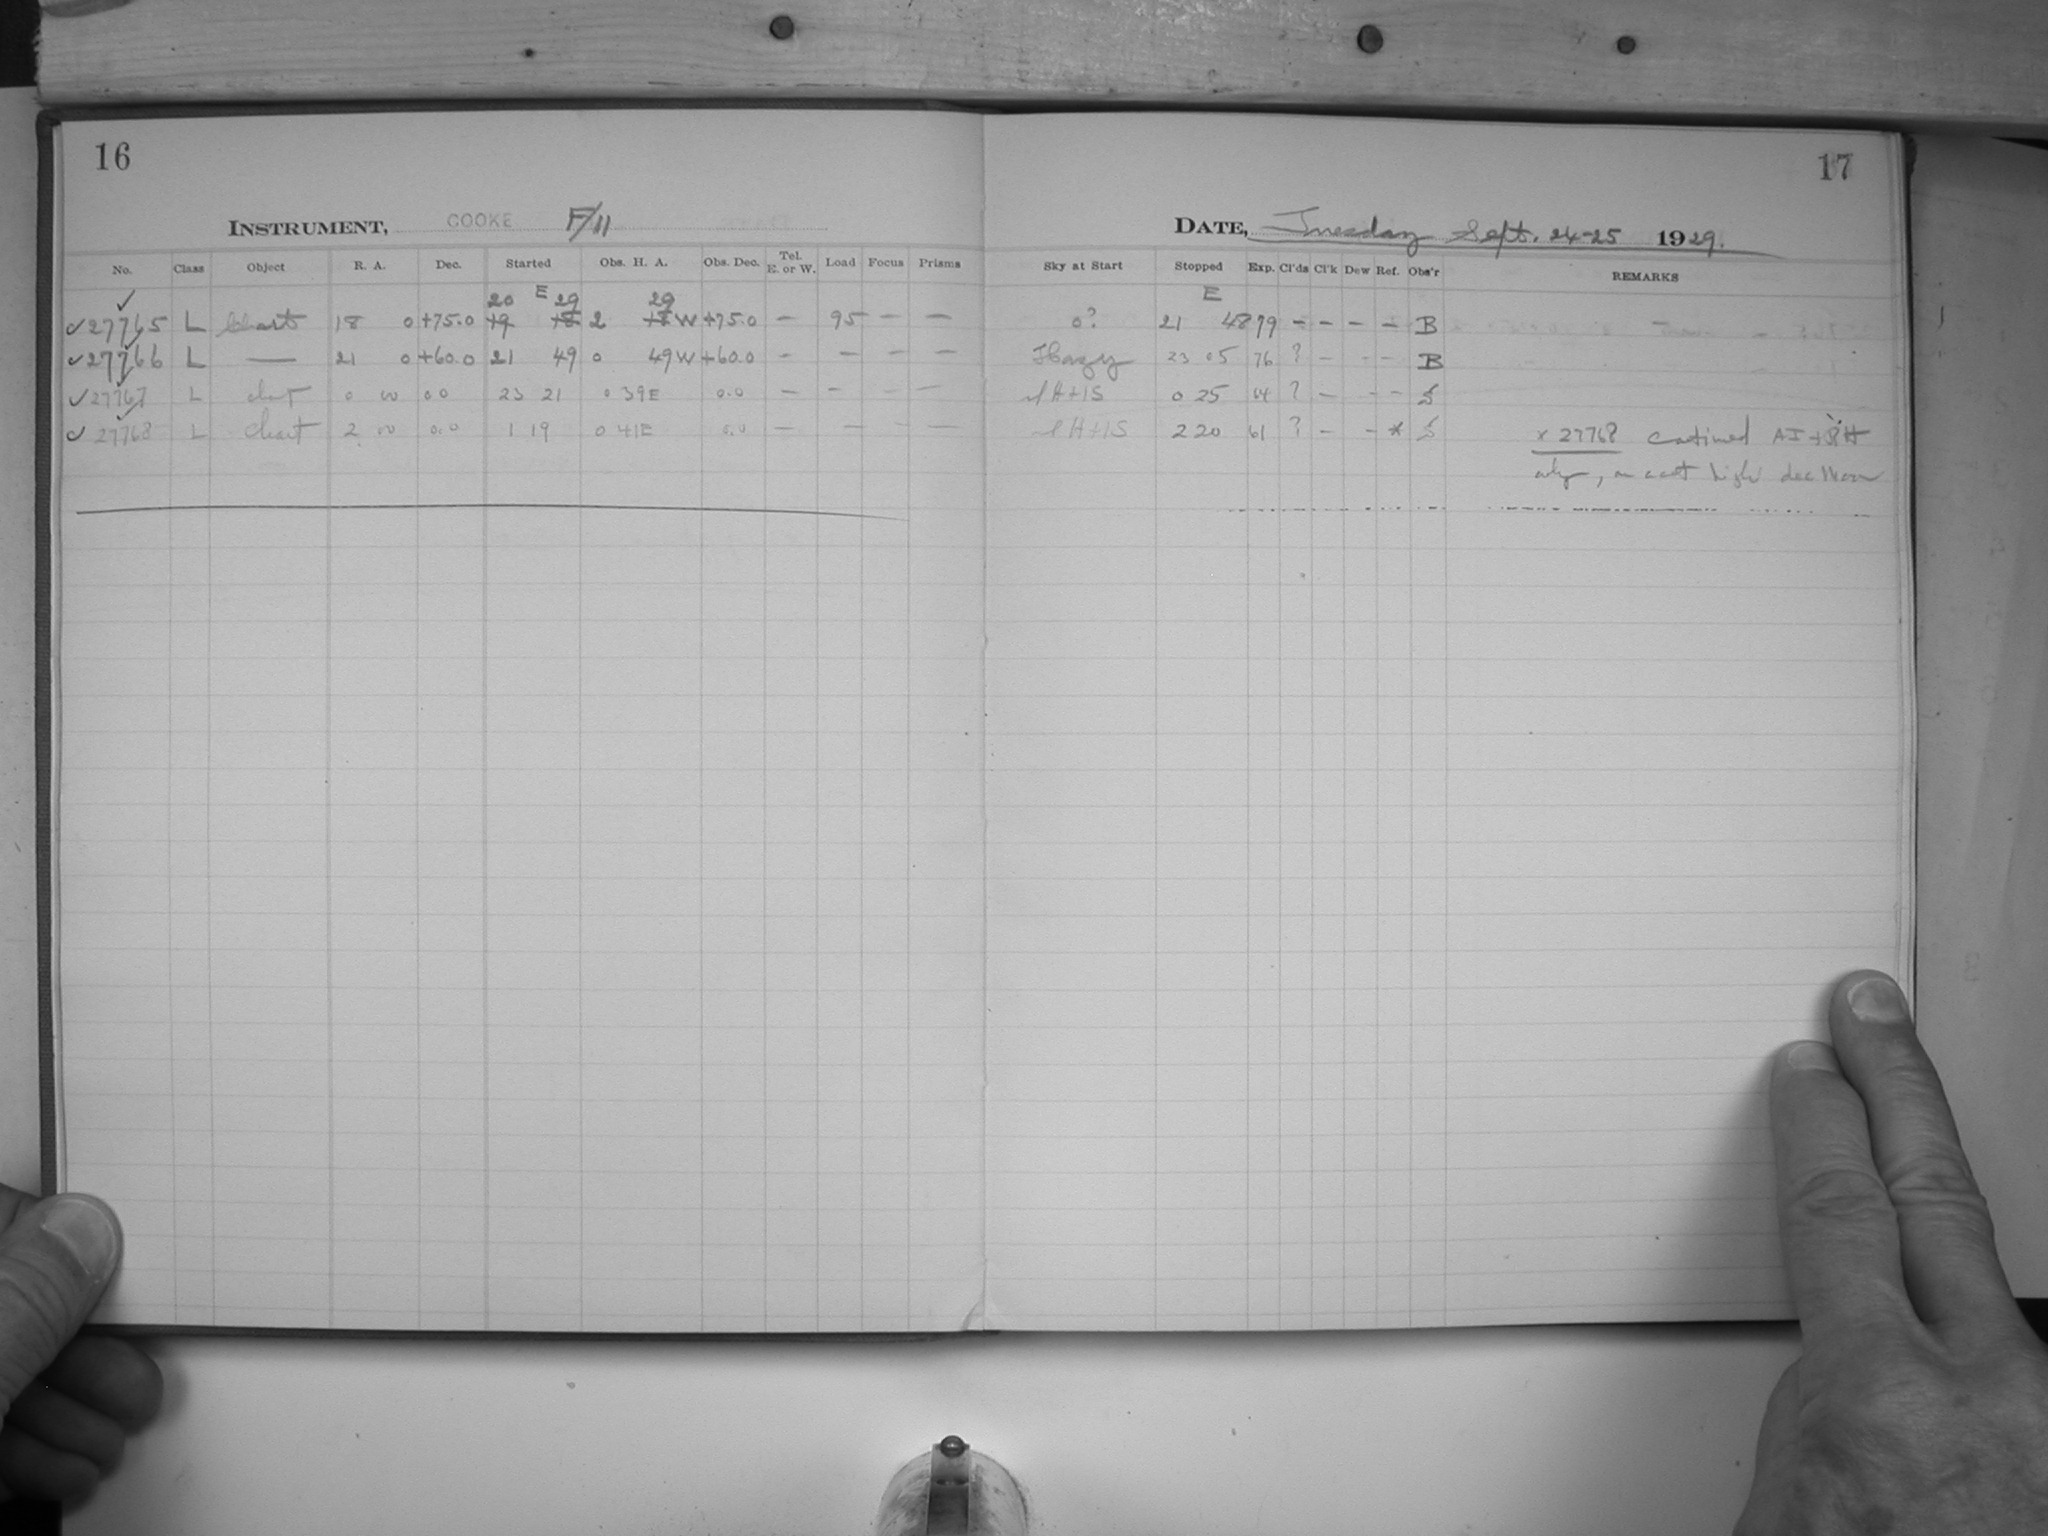 16
INSTRUMENT, COOKE F/11
No. Class Object R. A. Dec. Started Obs. H. A. Obs. Dec. Tel. E. or W. Load Focus Prisms
20 E 29 29
✓27765 L Chart 18 0 +75.0 19 18 2 18 W +75.0 — 95 — —
✓27766 L — 21 0 +60.0 21 49 0 49W +60.0 - — - —
✓27767 L chart 0 00 0 0 23 21 0 39E 0.0 — — - —
✓27768 L Chart 2 00 0.0 1 19 0 41E 0.0 — — - —
17
DATE, Tuesday Sept. 24-25 1929.
Sky at Start Stopped Exp. Cl'ds Cl'k Dew Ref. Obs'r REMARKS
E
0? 21 48 79 - - - - B
Hazy 23 05 76 ? - - - B
H+1S 0 25 64 ? - - -
H+1S 2 20 61 ? - - *
x 27768 continued AI +
only, on acct high dec Moon